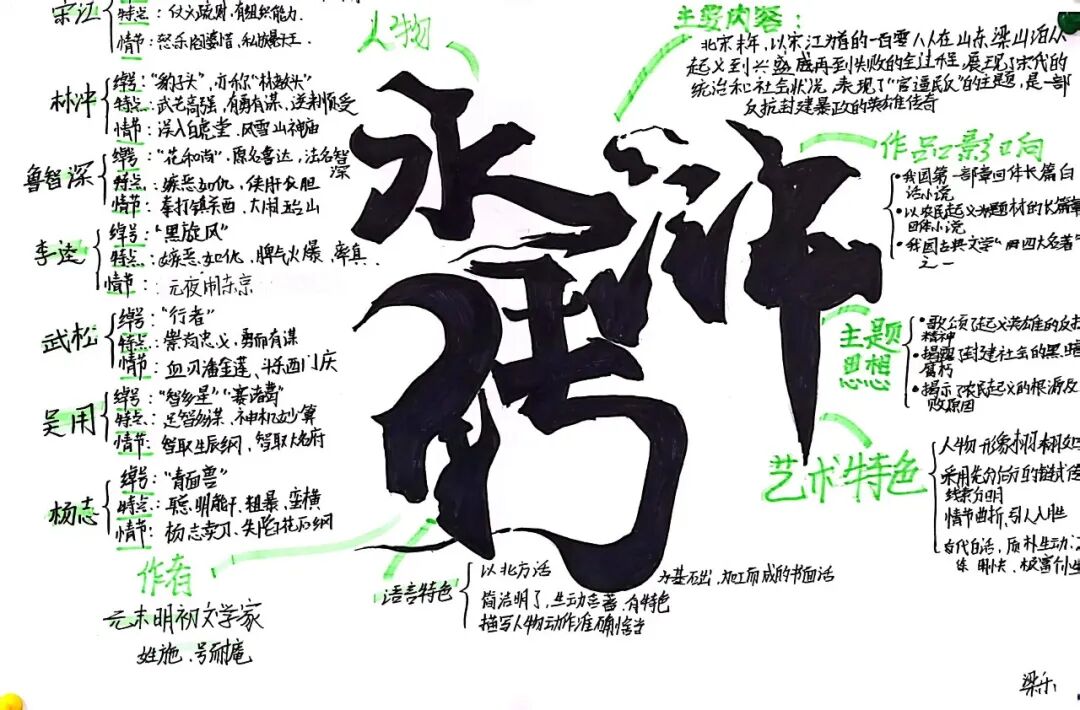 人物
宋江
特点：仗义疏财，有组织能力.
情节：怒杀阎婆惜，私放晁天王.
林冲
绰号："豹子头"，亦称"林教头"
特点：武艺高强，有勇有谋，逆来顺受
情节：深入白虎堂、风雪山神庙
鲁智深
绰号："花和尚"，原名鲁达，法名智深
特点：嫉恶如仇，侠肝义胆
情节：拳打镇关西、大闹五台山
李逵
绰号："黑旋风"
特点：嫉恶如仇，脾气火爆、率真
情节：元夜闹东京
武松
绰号："行者"
特点：崇尚忠义，勇而有谋
情节：血刃潘金莲、斗杀西门庆
吴用
绰号："智多星""赛诸葛"
特点：足智多谋、神机妙算
情节：智取生辰纲、智取大名府
杨志
绰号："青面兽"
特点：聪明能干、粗暴、蛮横
情节：杨志卖刀、失陷花石纲
作者
元末明初文学家
姓施、号耐庵
水浒传
主要内容：
北宋末年，以宋江为首的一百零八人在山东梁山泊从
起义到兴盛再到失败的全过程，展现了宋代的
统治和社会状况，表现了"官逼民反"的主题，是一部
反抗封建暴政的英雄传奇
作品影响
•我国第一部章回体长篇白
话小说
•以农民起义为题材的长篇章
回体小说
•我国古典文学"四大名著"
之一
主题
思想
•歌颂了起义英雄的反抗
精神
•揭露了封建社会的黑暗
腐朽
•揭示了农民起义的根源及
败原因
艺术特色
人物形象栩栩如
采用先分后合的链式
线索分明
情节曲折、引人入胜
古代白话，质朴生动
语言特色
以北方话
为基础，加工而成的书面话
简洁明了，生动
有特色
描写人物动作准确恰当
梁乐